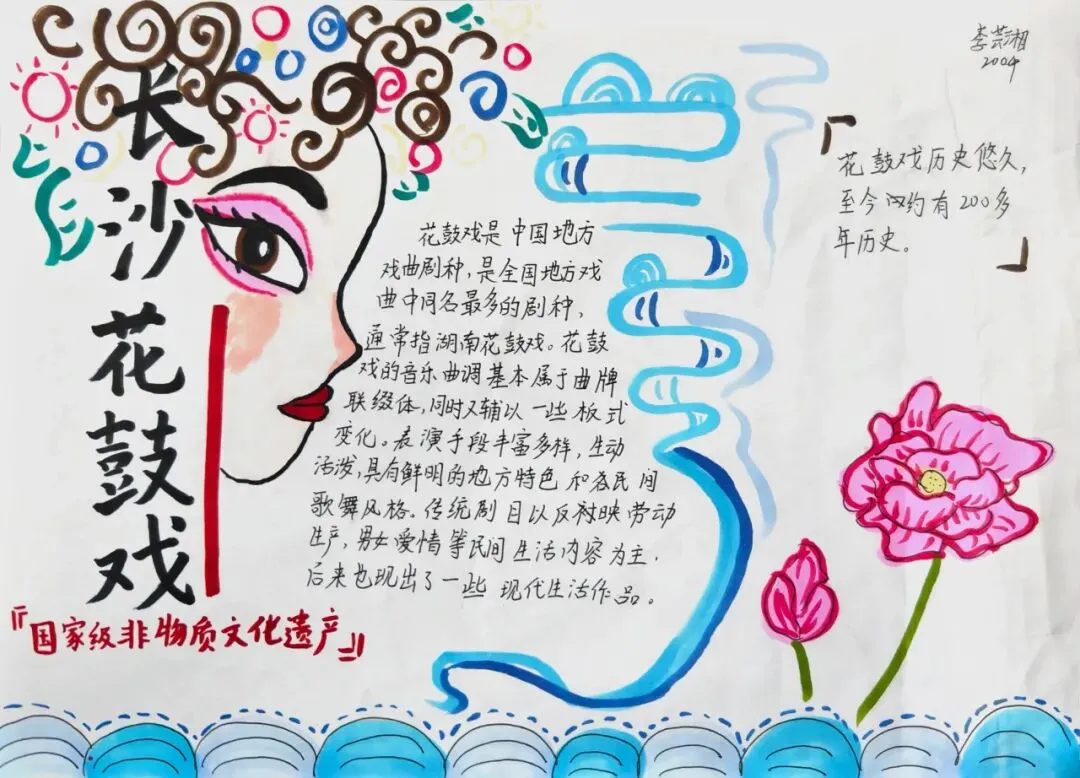 长沙花鼓戏
『国家级非物质文化遗产』
花鼓戏是中国地方
戏曲剧种，是全国地方戏
曲中同名最多的剧种，
通常指湖南花鼓戏。花鼓
戏的音乐曲调基本属于曲牌
联缀体，同时又辅以一些板式
变化。表演手段丰富多样，生动
活泼，具有鲜明的地方特色和各民间
歌舞风格。传统剧目以反被映劳动
生产，男女爱情等民间生活内容为主.
后来也现出了一些现代生活作品。
李芸湘
2004
「花鼓戏历史悠久，
至今约有200多
年历史。」